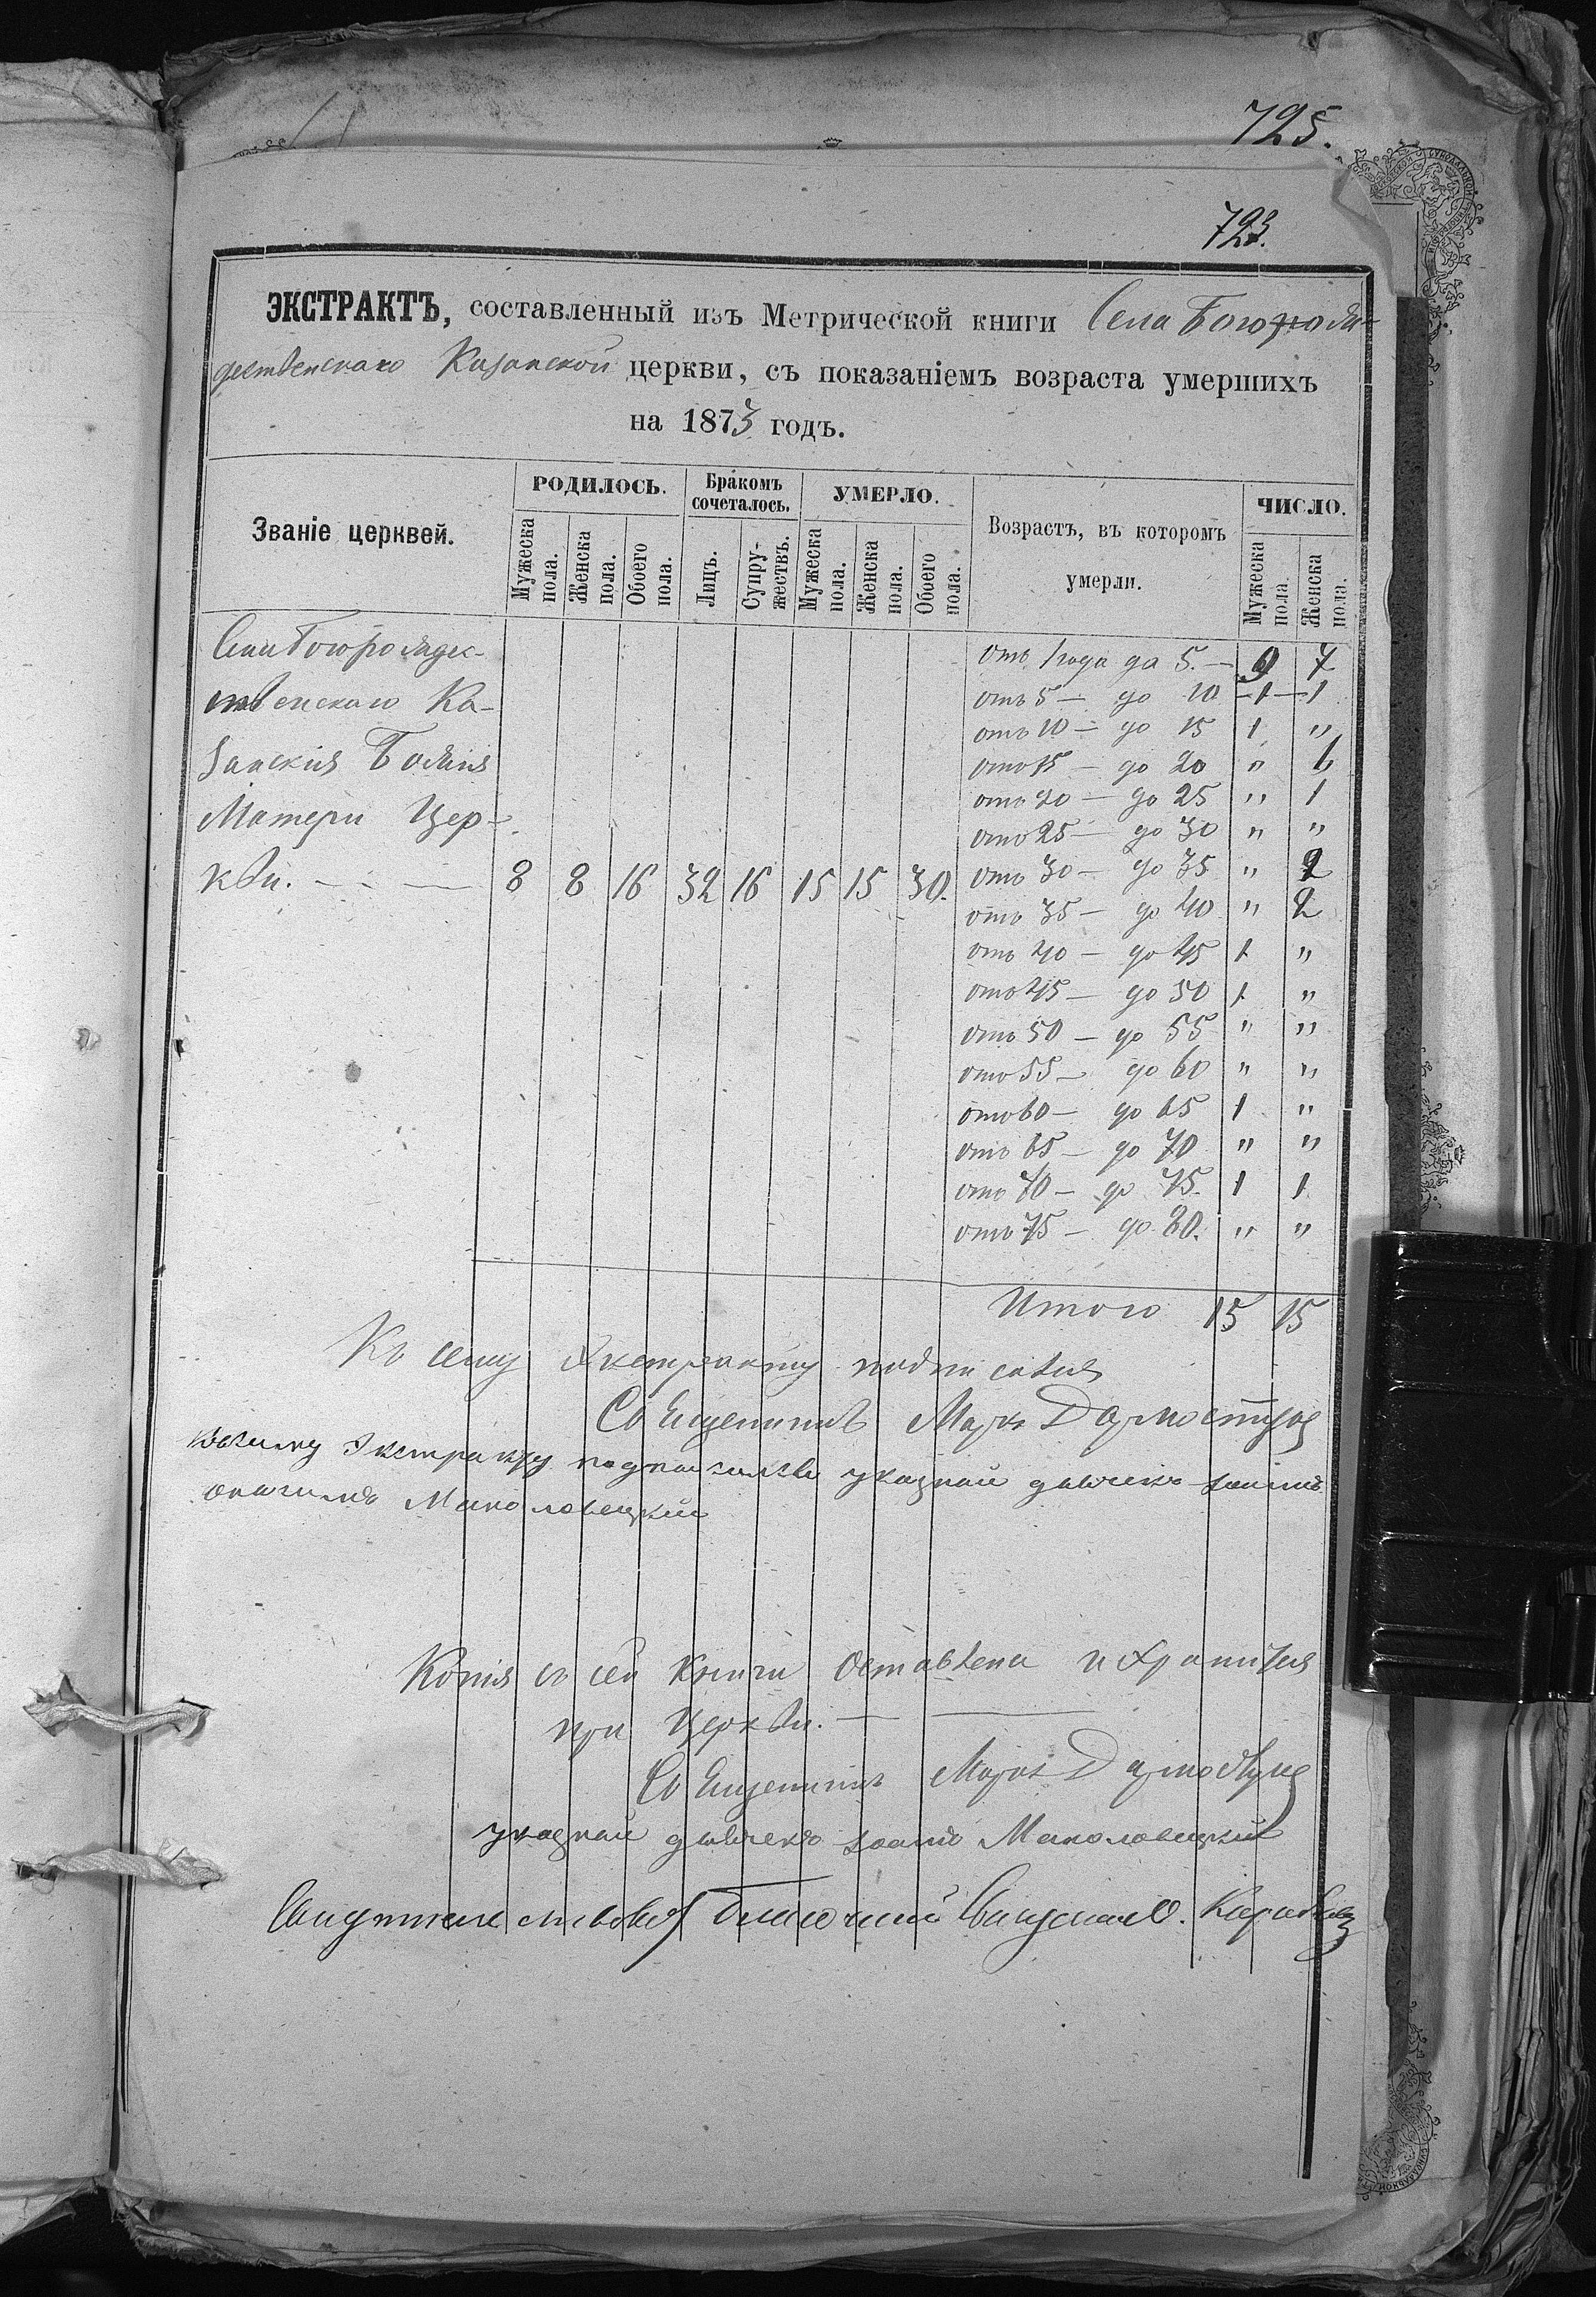 725.
723.
ЭКСТРАКТЪ, составленный изъ Метрической книги Села Богорож-
дественскаго Казанской церкви, съ показаніемъ возраста умершихъ
на 1873 годъ.
Званіе церквей.
РОДИЛОСЬ.
Мужеска пола.
Женска пола.
Обоего пола.
Бракомъ сочеталось.
Лицъ.
Супружествъ.
УМЕРЛО.
Мужеска пола.
Женска пола.
Обоего пола.
Возрастъ, въ которомъ
умерли.
ЧИСЛО.
Мужеска пола.
Женска пола.
Села Богорождес-
твенскаго Ка-
занскія Божія
Матери Цер-
кви. 8 8 16 32 16 15 15 30.
отъ 1 года да 5. — 9 7
отъ 5 — до 10 — 1 — 1
отъ 10 — до 15 1 "
отъ 15 — до 20 " 1
отъ 20 — до 25 " 1
отъ 25 — до 30 " "
отъ 30 — до 35 " 2
отъ 35 — до 40 " 2
отъ 40 — до 45 1 "
отъ 45 — до 50 1 "
отъ 50 — до 55 " "
отъ 55 — до 60 " "
отъ 60 — до 65 1 "
отъ 65 — до 70 " "
отъ 70 — до 75. 1 1
отъ 75 — до 80. " "
Итого 15 15
Къ сему Экстракту подписался
Священникъ Маркъ
Экстракту указнай дьячекъ
Копія съ сей книги оставлена и хранится
при Церкви. —
Священникъ Маркъ
указнай дьячекъ
Благочинный Священ.